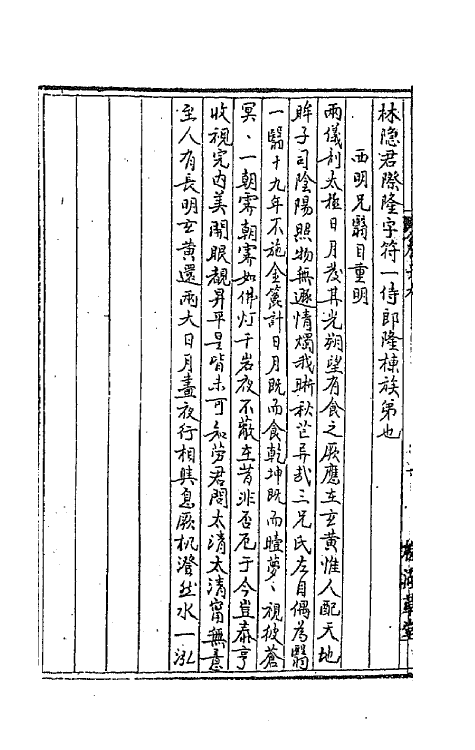 林隐君際隆字符一侍郎隆棟族第也
西明兄翳目重明
兩儀剖太極日月發其光朔望有食之厥應在玄黃惟人配天地
眸子司陰陽照物無遯情燭我晰秋芒异哉三兄氏左目偶為翳
一翳十九年不施金篦計日月既而食乾坤既而曀夢〻視彼蒼
冥〻一朝霽朝霽如佛灯千岩夜不蔽在昔非否厄于今豈泰亨
收視完内美開眼覩昇平是皆未可知劳君問太清太清甯無意
至人有長明玄黃還兩大日月晝夜行相與息厥机澄然水一泓